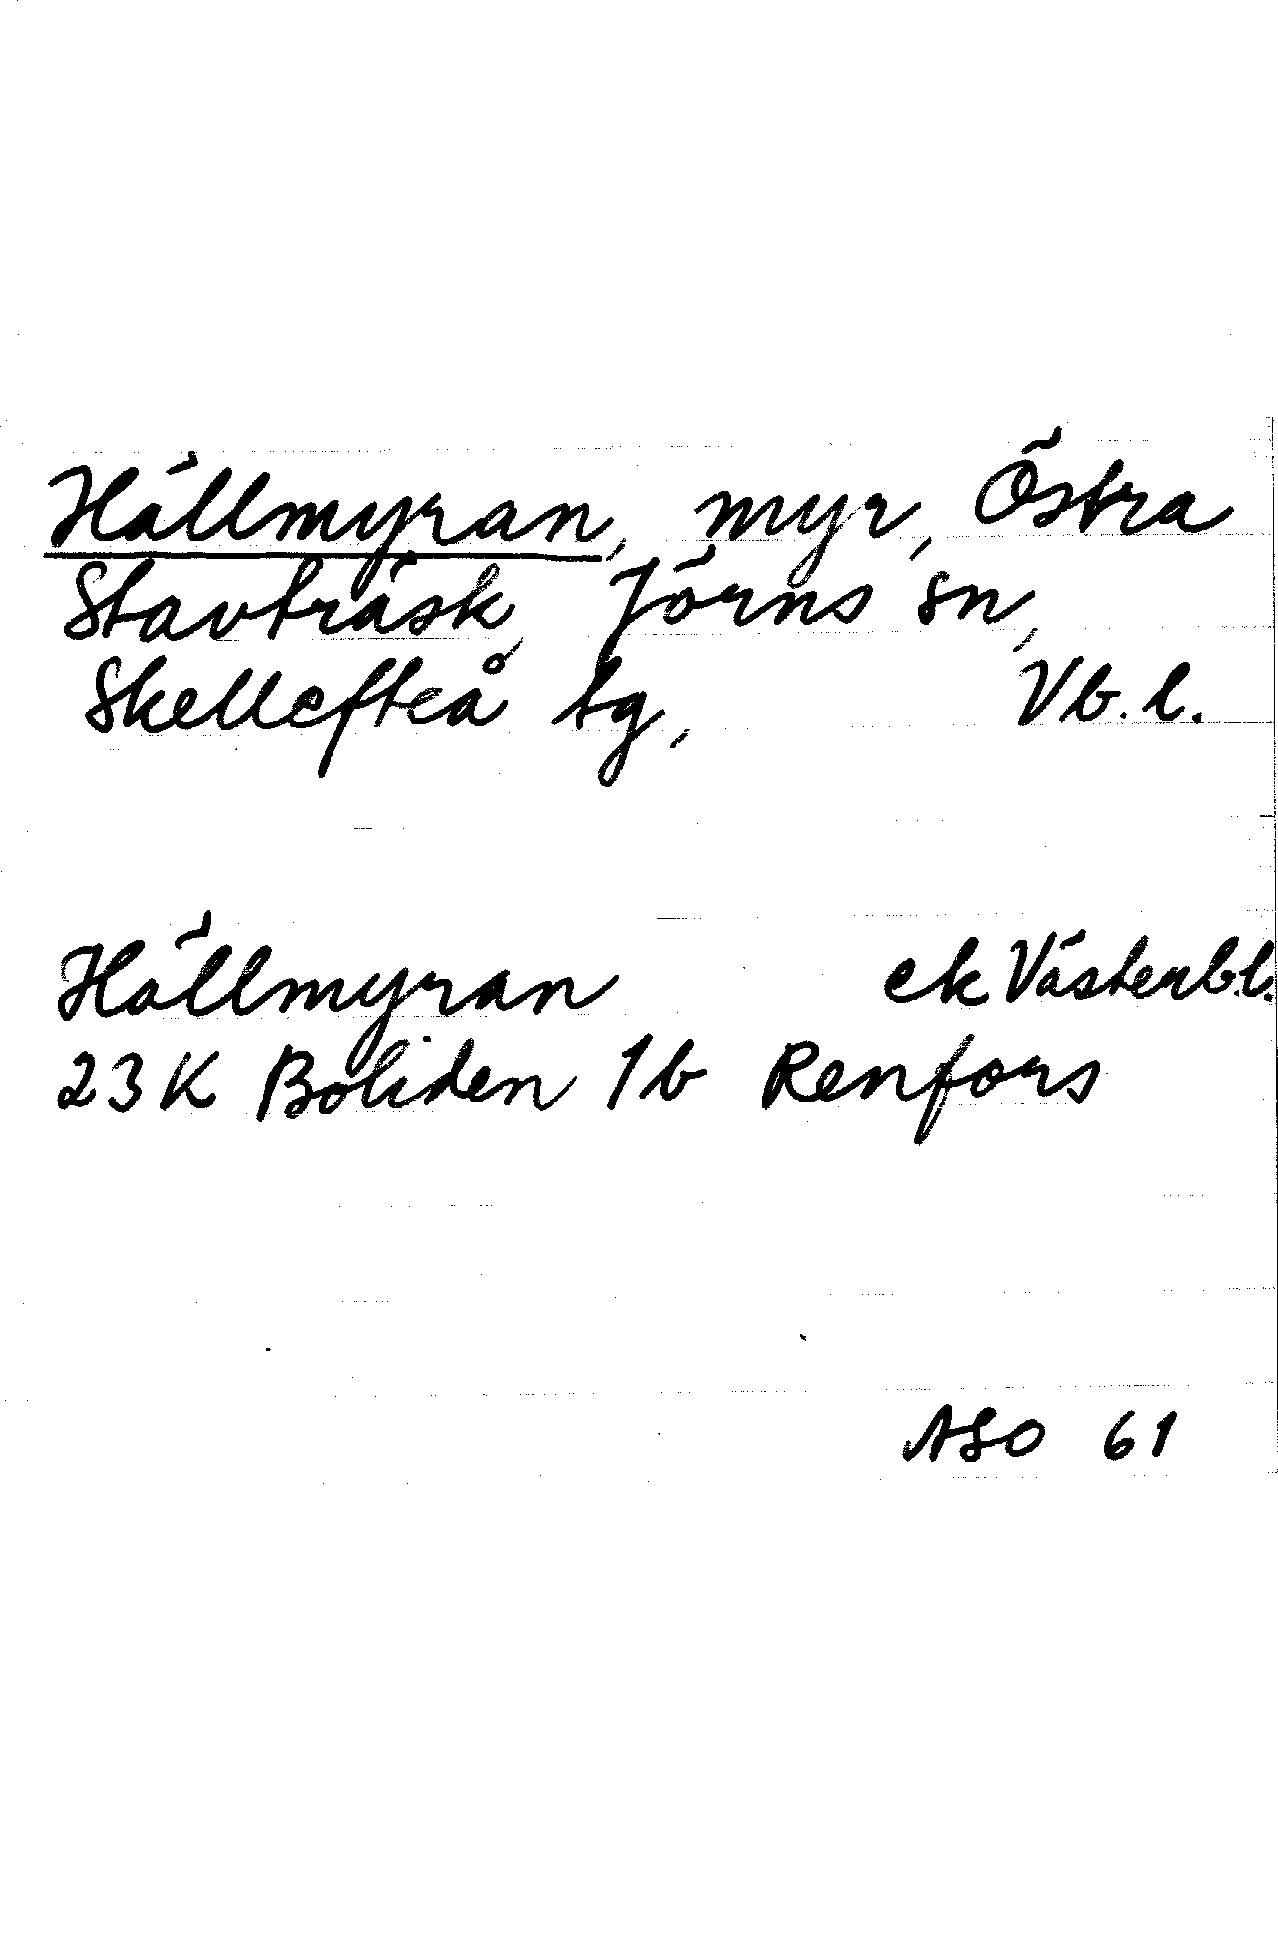 Hällmyran, myr, Östra
Stavträsk, Jörns sn,
Skellefteå tg, Vb. l.
Hällmyran ek Västerb.l.
23K Boliden 1b Renfors
ASO 61